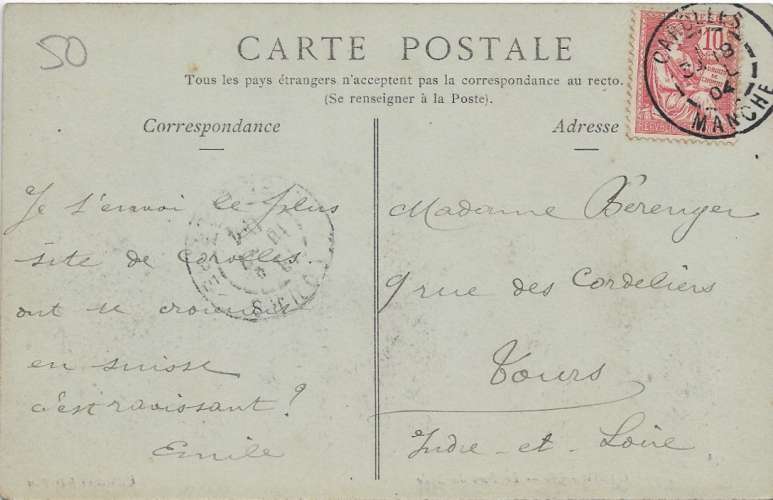 50
CARTE POSTALE
Tous les pays étrangers n'acceptent pas la correspondance au recto.
(Se renseigner à la Poste).
Correspondance
Je t'envoi le plus
site de Carolles
ont se croirait
en suisse
c'est ravissant?
Emile
Adresse
CAROLLES
04
MANCHE
10
Madame Bérenger
9 rue des Cordeliers
Tours
Indre-et-Loire